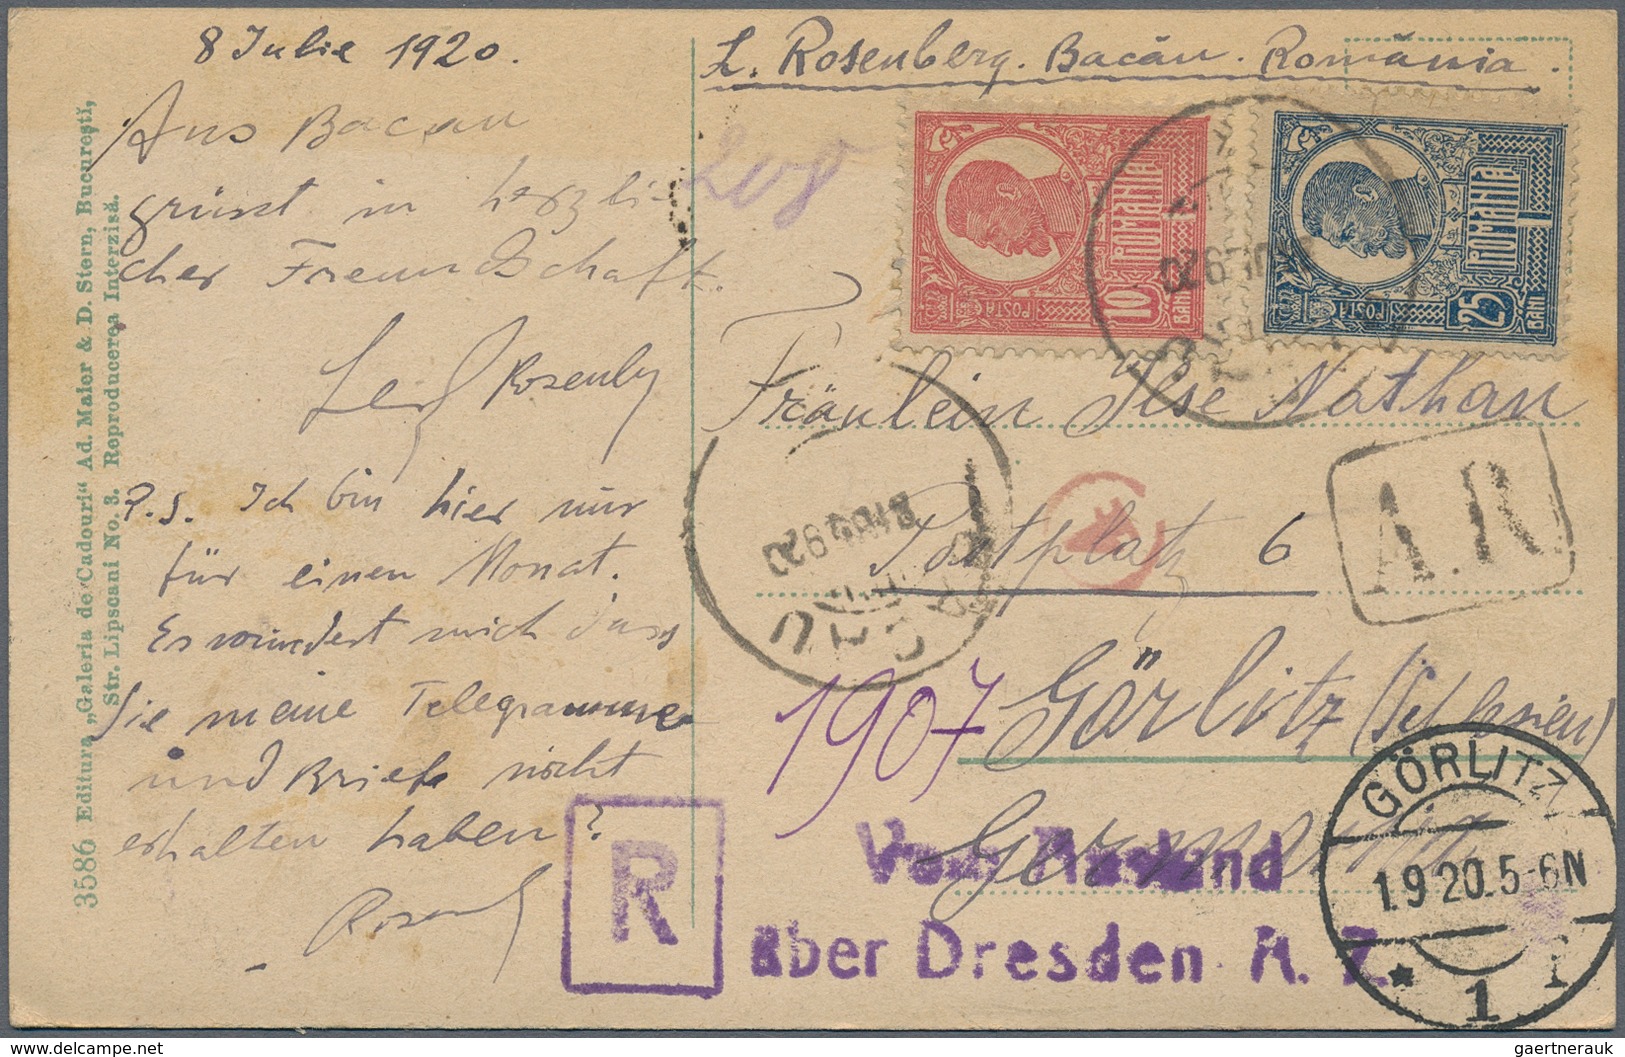 8 Iulie 1920.
Aus Bacau
grüsst in herzli-
cher Freundschaft.
Rosenberg
P.S. Ich bin hier nur
für einen Monat.
Es wundert mich dass
Sie meine Telegramme
und Briefe nicht
erhalten haben?
3586 Editura „Galeria de Cadouri“ Ad. Maier & D. Stern, Bucureşti,
Str. Lipscani No. 3. Reproducerea Interzisă.
L. Rosenberg. Bacău. România.
ROMANIA
POSTA
10 BANI
ROMANIA
POSTA
25 BANI
Fräulein Ilse Nathan
Postplatz 6
Görlitz (Schlesien)
Germania
A.R
1907
R
Vom Ausland
über Dresden A. 7.
GÖRLITZ
1.9 20. 5-6N
* 1
gaertnerauk